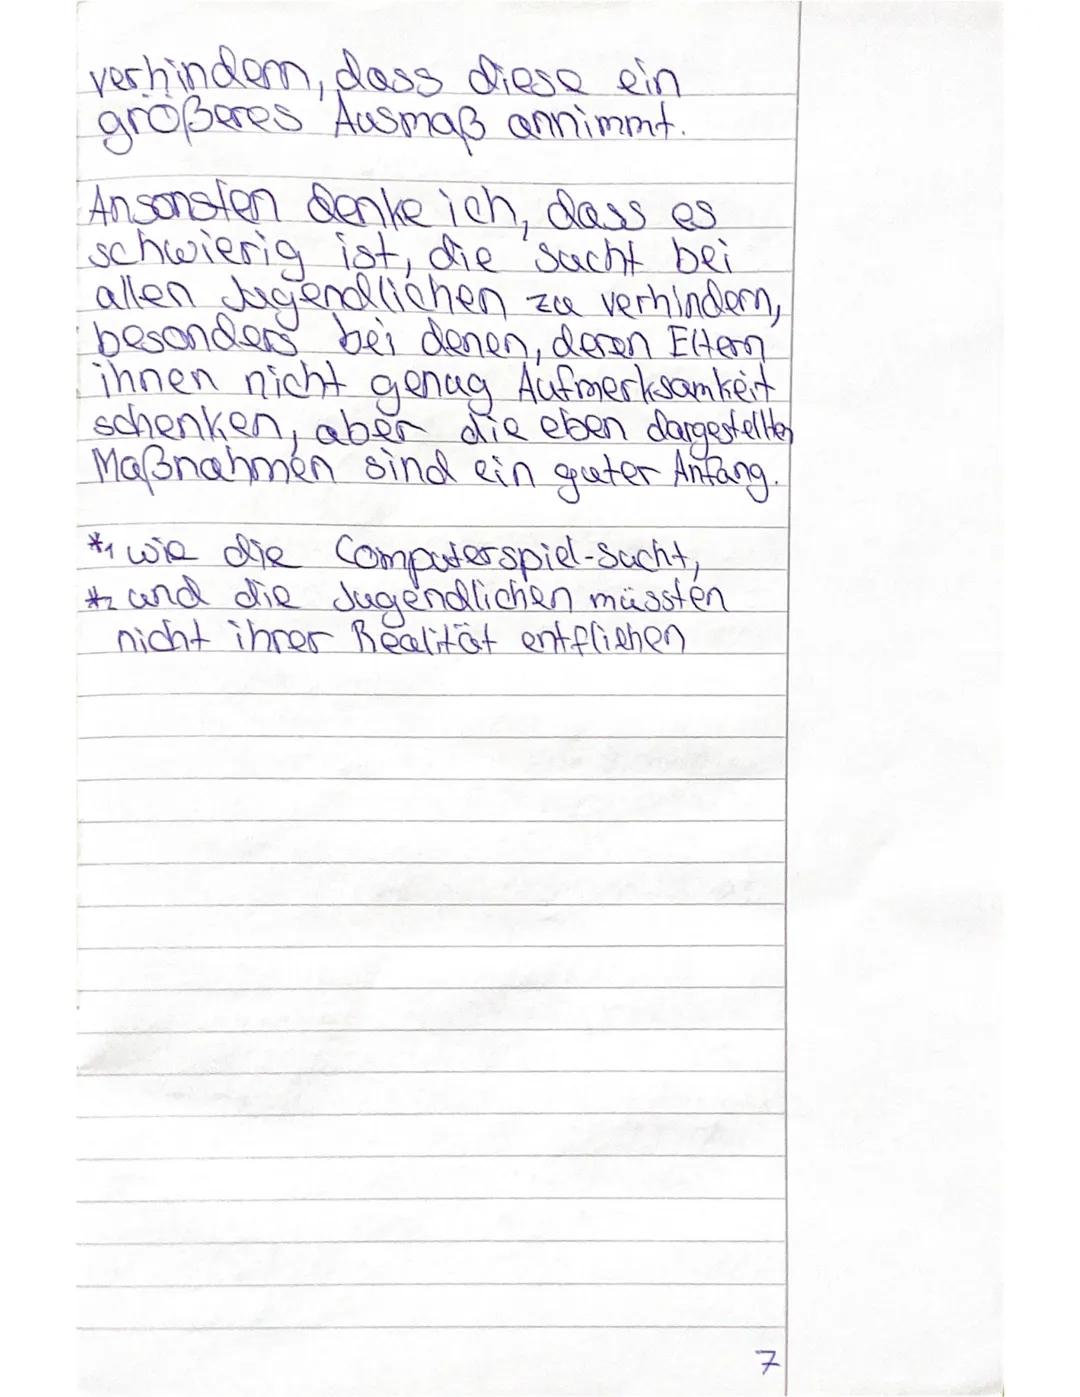 verhindern, dass diese ein
größeres Ausmaß annimmt.
Ansonsten denke ich, dass es
schwierig ist, die Sucht bei
allen Jugendlichen zu verhindern,
besonders bei denen, deren Eltern
ihnen nicht genug Aufmerksamkeit
schenken, aber die eben dargestellten
Maßnahmen sind ein guter Anfang.
*1 wie die Computerspiel-Sucht,
*2 und die Jugendlichen müssten
nicht ihrer Realität entfliehen
7